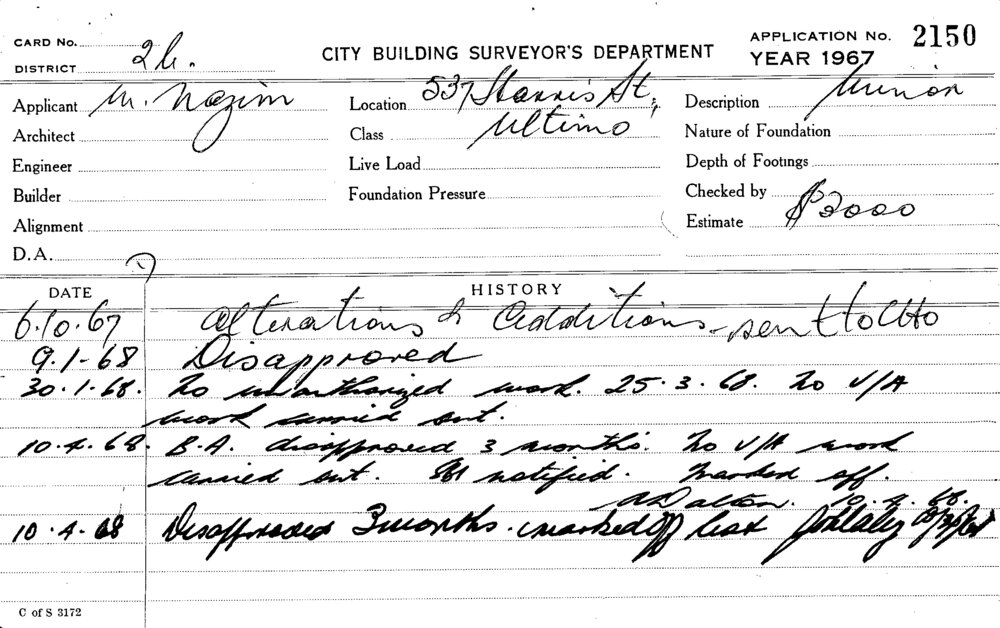 CARD No.
DISTRICT 2b.
CITY BUILDING SURVEYOR'S DEPARTMENT
APPLICATION No. 2150
YEAR 1967
Applicant M. Nazim
Location 537 Harris St,
Description Minor
Architect
Class Ultimo
Nature of Foundation
Engineer
Live Load
Depth of Footings
Builder
Foundation Pressure
Checked by
Alignment
Estimate $2000
D.A.
DATE
HISTORY
6.10.67 Alterations & Additions - sent to CHO
9.1-68 Disapproved
30.1.68. No unauthorized work. 25.3.68. No U/A
work carried out.
10.4.68. B.A. disapproved 3 months. No U/A work
carried out. notified. Marked off.
Dalton. 10.4.68.
10.4.68 Disapproved 3 months. marked off list
C of S 3172